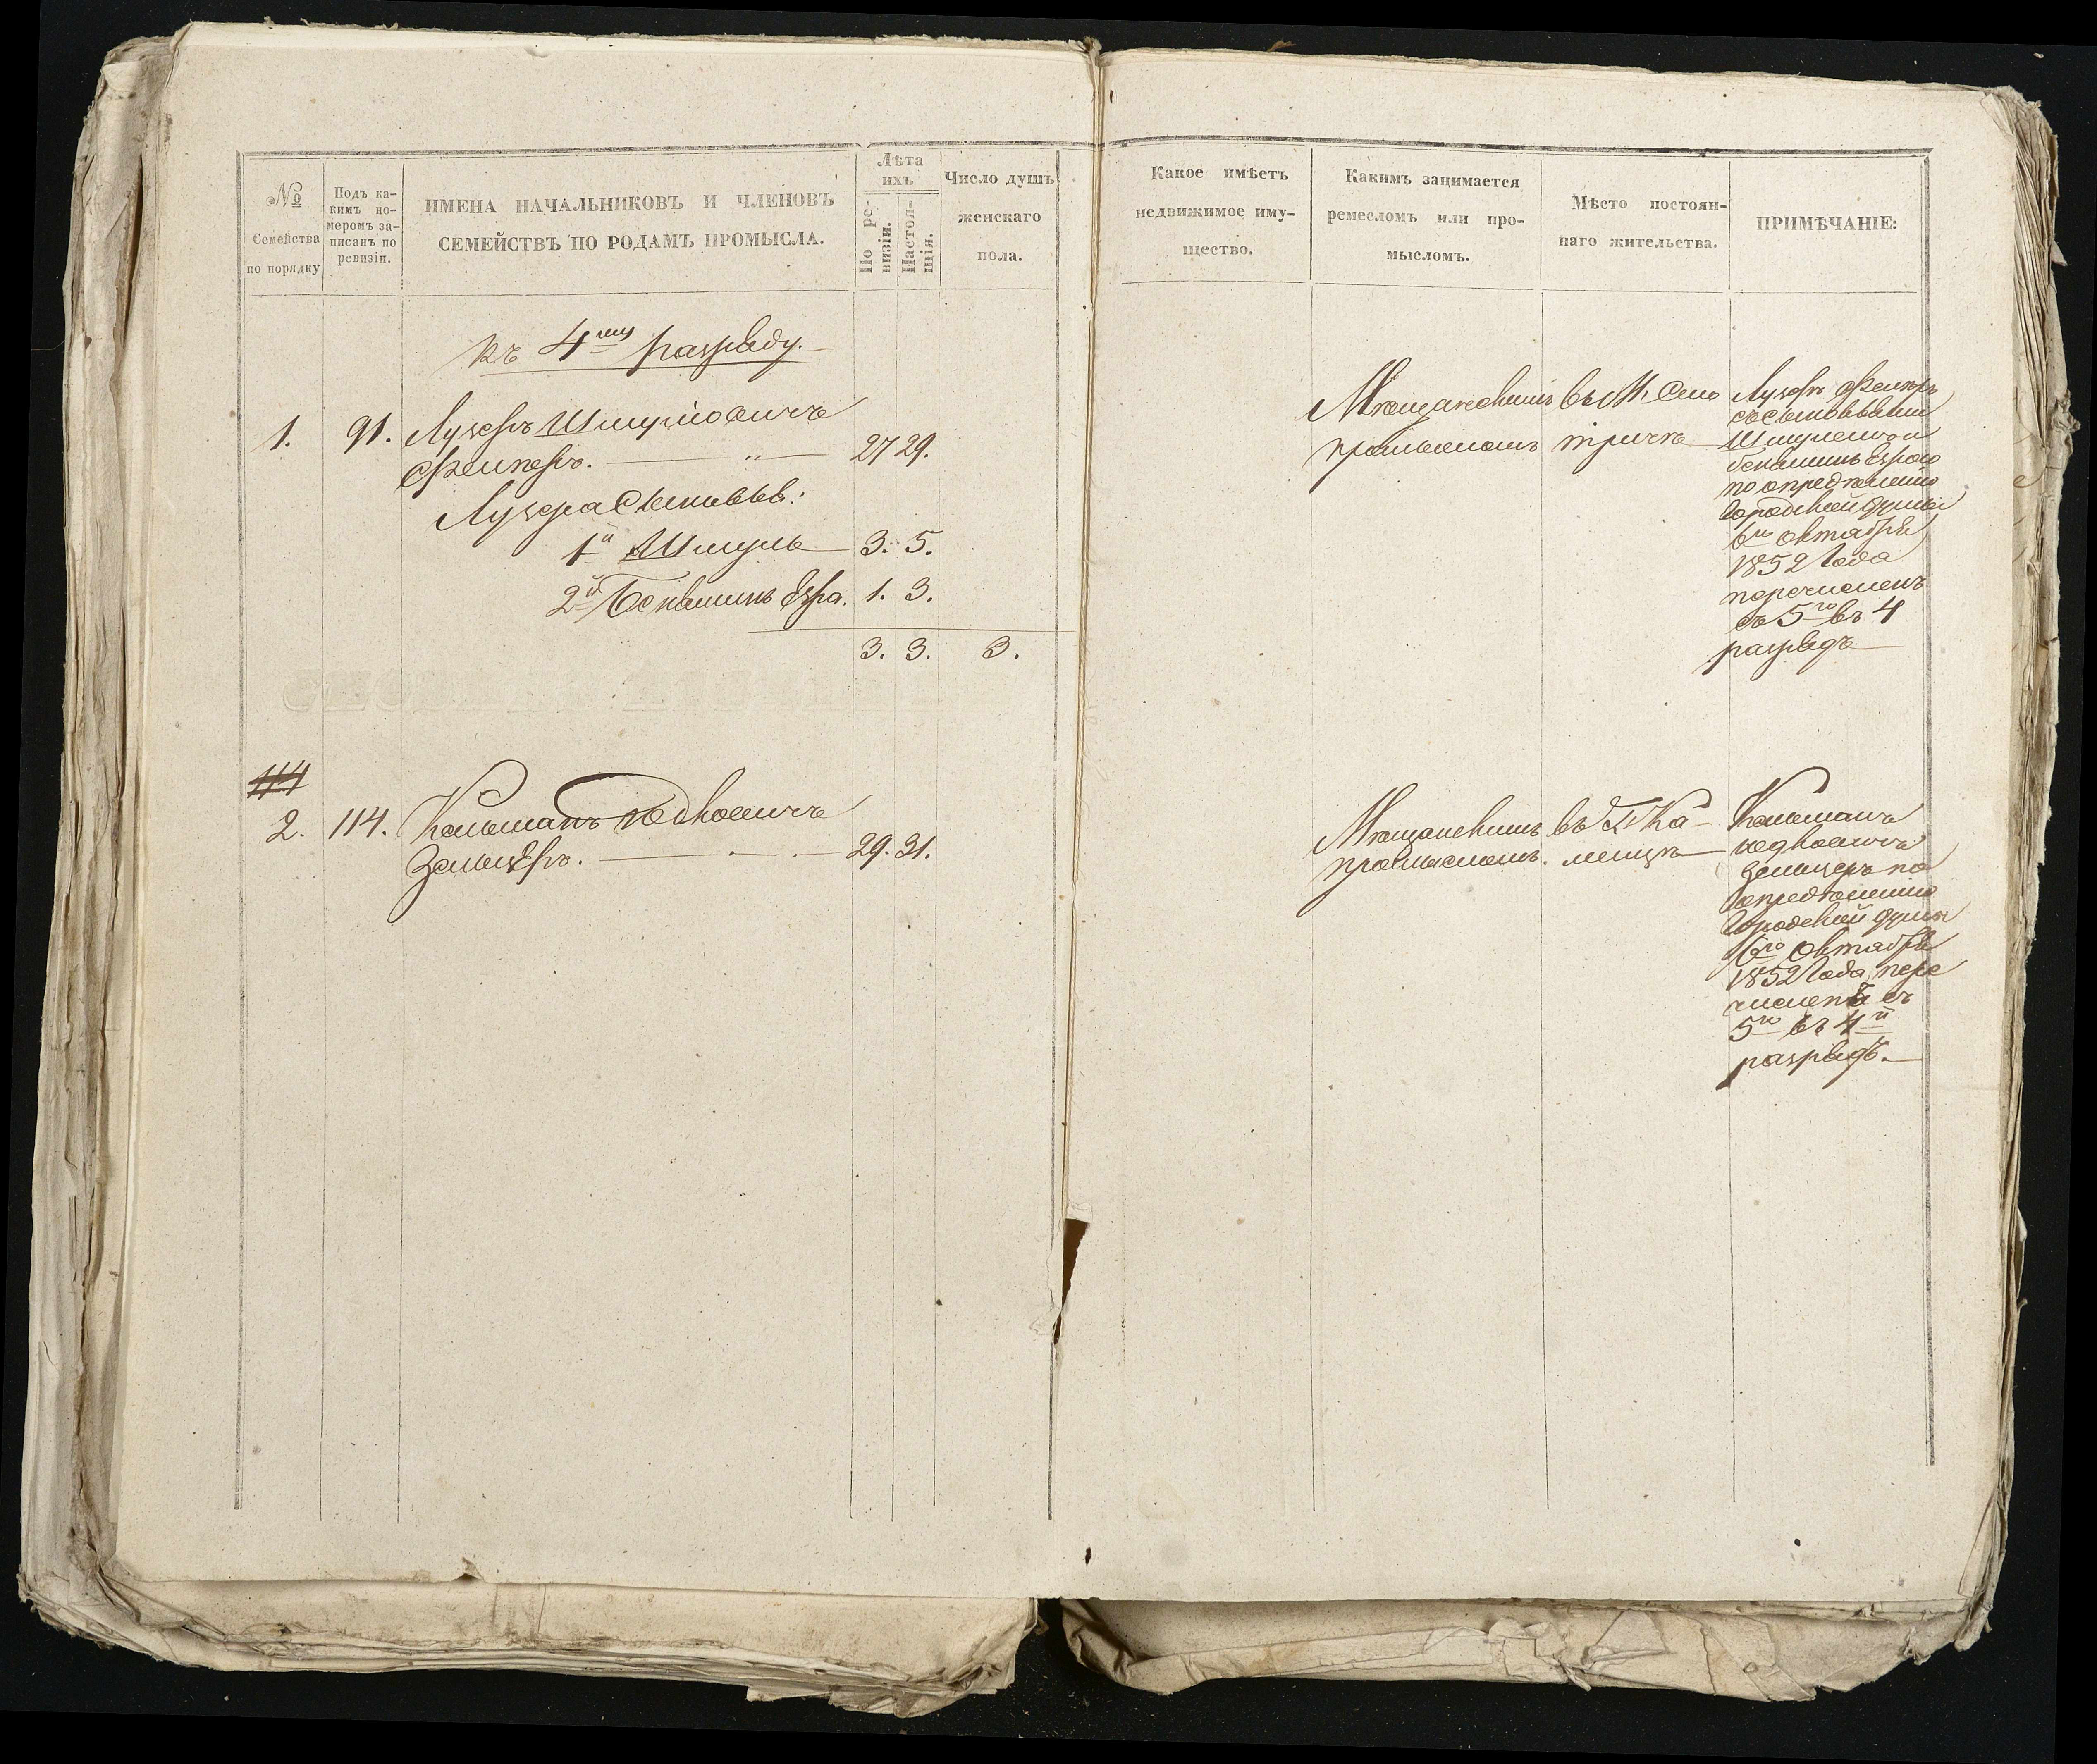 №
Семейства
по порядку
Подъ ка-
кимъ но-
меромъ за-
писанъ по
ревизіи.
ИМЕНА НАЧАЛЬНИКОВЪ И ЧЛЕНОВЪ
СЕМЕЙСТВЪ ПО РОДАМЪ ПРОМЫСЛА.
Лѣта
ихъ
По ре-
визіи.
Настоя-
щія.
Число душъ
женскаго
пола.
Къ 4му разряду.
1. 91. Лузеръ Шмуліовичъ
27 29.
Лузера Сыновья:
1й Шмуль 3. 5.
2й Беньяминъ Езра. 1. 3.
3. 3. 3.
114
2. 114. Кельманъ
Зельцеръ. 29. 31.
Какое имѣетъ
недвижимое иму-
щество.
Какимъ занимается
ремесломъ или про-
мысломъ.
Мѣсто постоян-
наго жительства.
ПРИМѢЧАНІЕ:
Мѣщанскимъ
промысломъ
въ М.
Лузеръ
съ сыновьями
Шмулемъ и
по опредѣленію
Городской думы
6го октября
1852 Года
перечисленъ
съ 5го въ 4
разрядъ
Мѣщанскимъ
промысломъ.
въ Г. Ка-
менцѣ
Кельманъ
Зельцеръ по
опредѣленію
Городской думы
6го Октября
1852 Года пере
численъ съ
5го въ 4й
разрядъ.